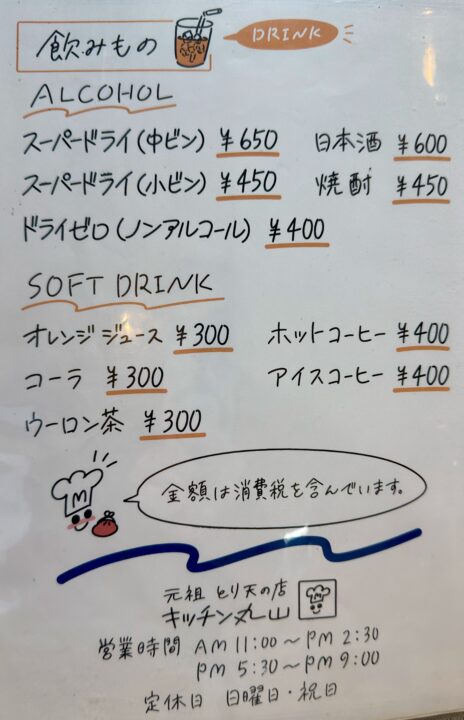 飲みもの DRINK
ALCOHOL
スーパードライ(中ビン) ¥650 日本酒 ¥600
スーパードライ(小ビン) ¥450 焼酎 ¥450
ドライゼロ(ノンアルコール) ¥400
SOFT DRINK
オレンジジュース ¥300 ホットコーヒー ¥400
コーラ ¥300 アイスコーヒー ¥400
ウーロン茶 ¥300
M
金額は消費税を含んでいます。
元祖 とり天の店
キッチン丸山 M
営業時間 AM 11:00〜PM 2:30
PM 5:30〜PM 9:00
定休日 日曜日・祝日